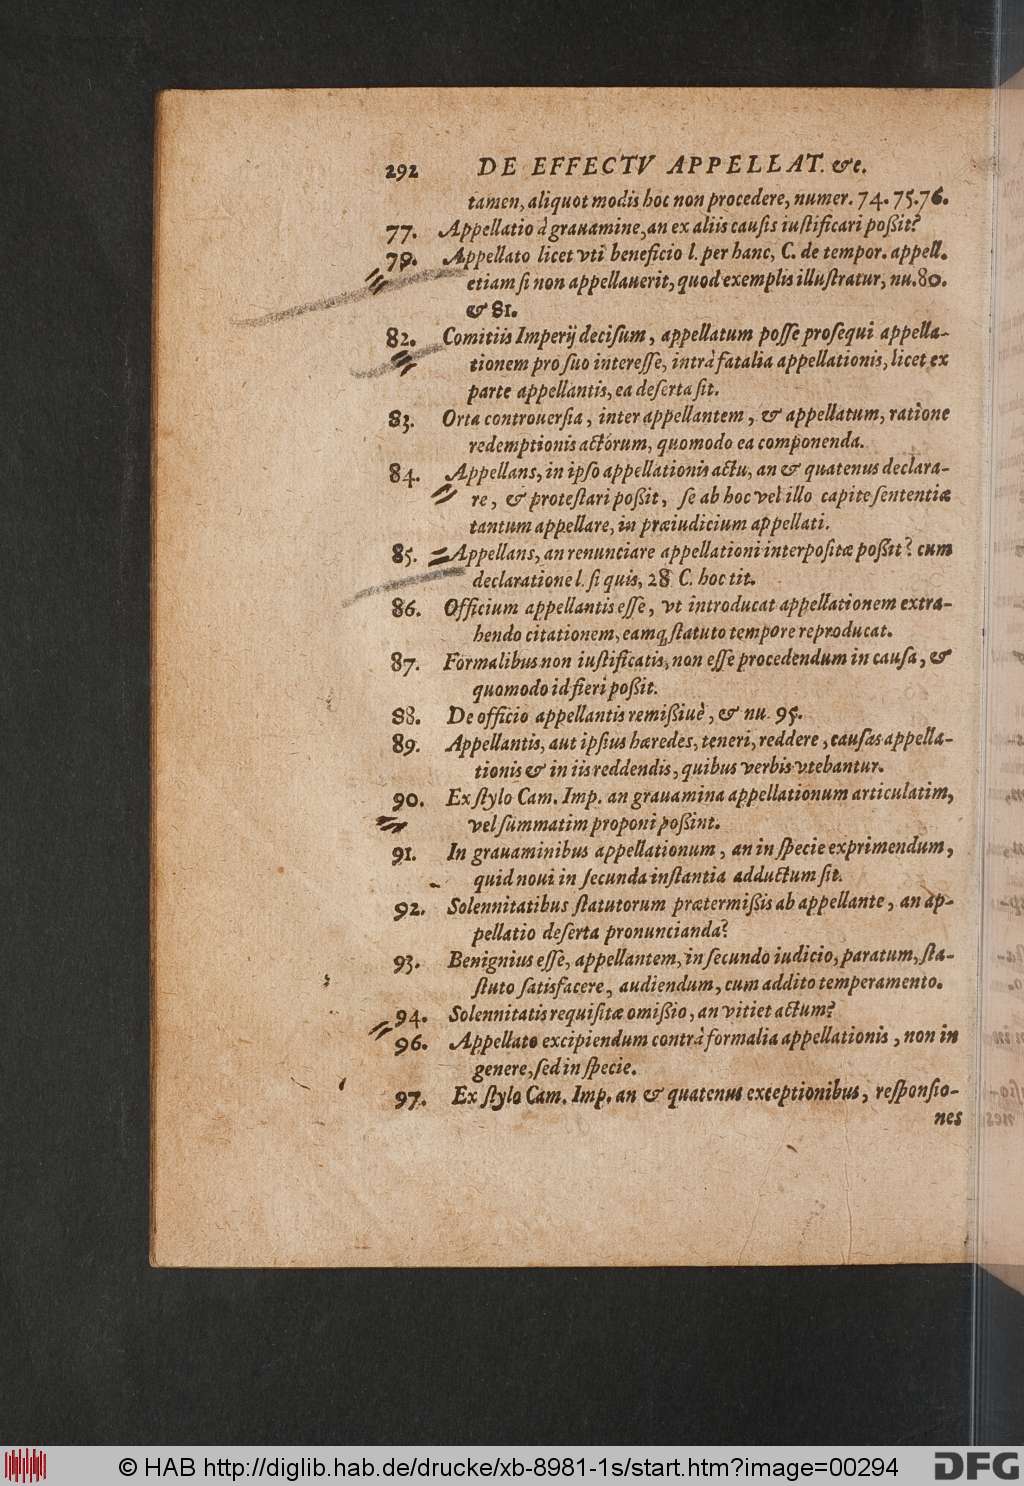 292 DE EFFECTV APPELLAT. &c.
tamen, aliquot modis hoc non procedere, numer. 74. 75. 76.
77. Appellatio à grauamine, an ex aliis causis iustificari poßit?
79. Appellato licet vti beneficio l. per hanc, C. de tempor. appell.
etiam si non appellauerit, quod exemplis illustratur, nu. 80.
& 81.
82. Comitiis Imperij decisum, appellatum posse prosequi appella-
tionem pro suo interesse, intrà fatalia appellationis, licet ex
parte appellantis, ea deserta sit.
83. Orta controuersia, inter appellantem, & appellatum, ratione
redemptionis actorum, quomodo ea componenda.
84. Appellans, in ipso appellationis actu, an & quatenus declara-
re, & protestari poßit, se ab hoc vel illo capite sententiæ
tantum appellare, in præiudicium appellati.
85. Appellans, an renunciare appellationi interpositæ poßit? cum
declaratione l. si quis, 28 C. hoc tit.
86. Officium appellantis esse, vt introducat appellationem extra-
hendo citationem, eamq́ statuto tempore reproducat.
87. Formalibus non iustificatis, non esse procedendum in causa, &
quomodo id fieri poßit.
88. De officio appellantis remißiuè, & nu. 95.
89. Appellantis, aut ipsius hæredes, teneri, reddere, causas appella-
tionis & in iis reddendis, quibus verbis vtebantur.
90. Ex stylo Cam. Imp. an grauamina appellationum articulatim,
vel summatim proponi poßint.
91. In grauaminibus appellationum, an in specie exprimendum,
quid noui in secunda instantia adductum sit.
92. Solennitatibus statutorum prætermißis ab appellante, an ap-
pellatio deserta pronuncianda?
93. Benignius esse, appellantem, in secundo iudicio, paratum, sta-
stuto satisfacere, audiendum, cum addito temperamento.
94. Solennitatis requisitæ omißio, an vitiet actum?
96. Appellato excipiendum contrà formalia appellationis, non in
genere, sed in specie.
97. Ex stylo Cam. Imp. an & quatenus exceptionibus, responsio-
nes
© HAB http://diglib.hab.de/drucke/xb-8981-1s/start.htm?image=00294
DFG